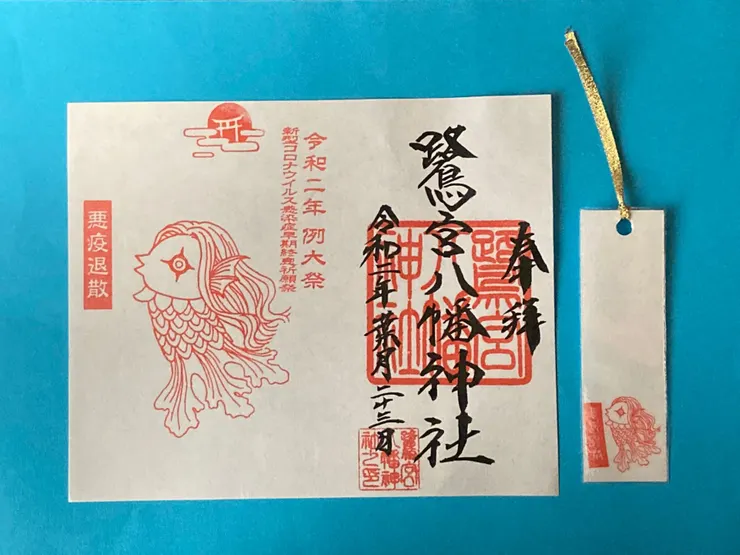 奉拝
鷺宮八幡神社
令和二年葉月二十三日
鷺宮
八幡
神社
鷺宮
八幡神
社之印
令和二年 例大祭
新型コロナウイルス感染症早期終息祈願祭
悪疫退散